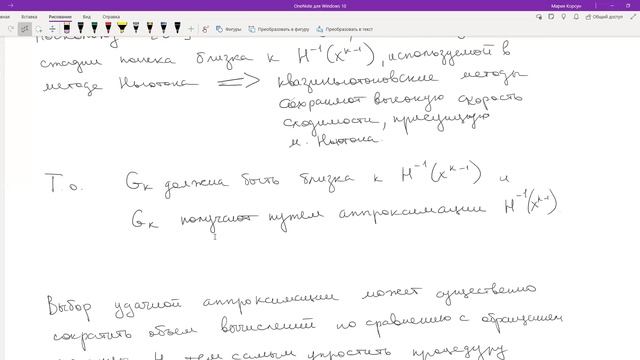 OneNote для Windows 10
Мария Корсун
Вставка Рисование Вид
Фигуры Преобразовать в фигуры Преобразовать в текст
Общий доступ
стадии поиска близка к H⁻¹(xᵏ⁻¹), используемой в
методе Ньютона ⟺ квазиньютоновские методы
сохраняют высокую скорость
сходимости, присущую
м. Ньютона.
Т.о. Gₖ должна быть близка к H⁻¹(xᵏ⁻¹) и
Gₖ получают путем аппроксимации H⁻¹(xᵏ⁻¹)
Выбор удачной аппроксимации может существенно
сократить объем вычислений по сравнению с обращением
H тем самым упростить процедуру